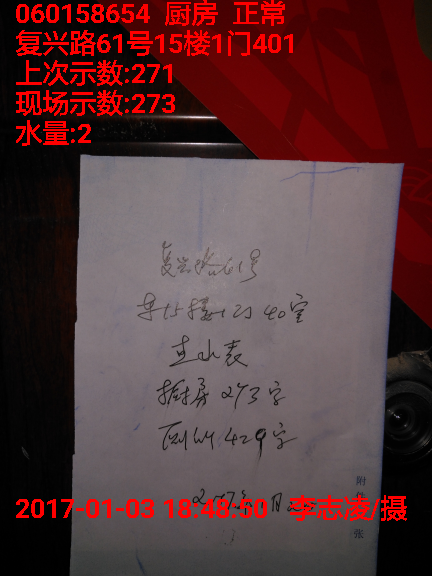 060158654 厨房 正常
复兴路61号15楼1门401
上次示数:271
现场示数:273
水量:2
复兴路61号
15楼1门40室
查水表
厨房273字
厕所429字
附
张
2017-01-03 18:48:50 李志凌/摄